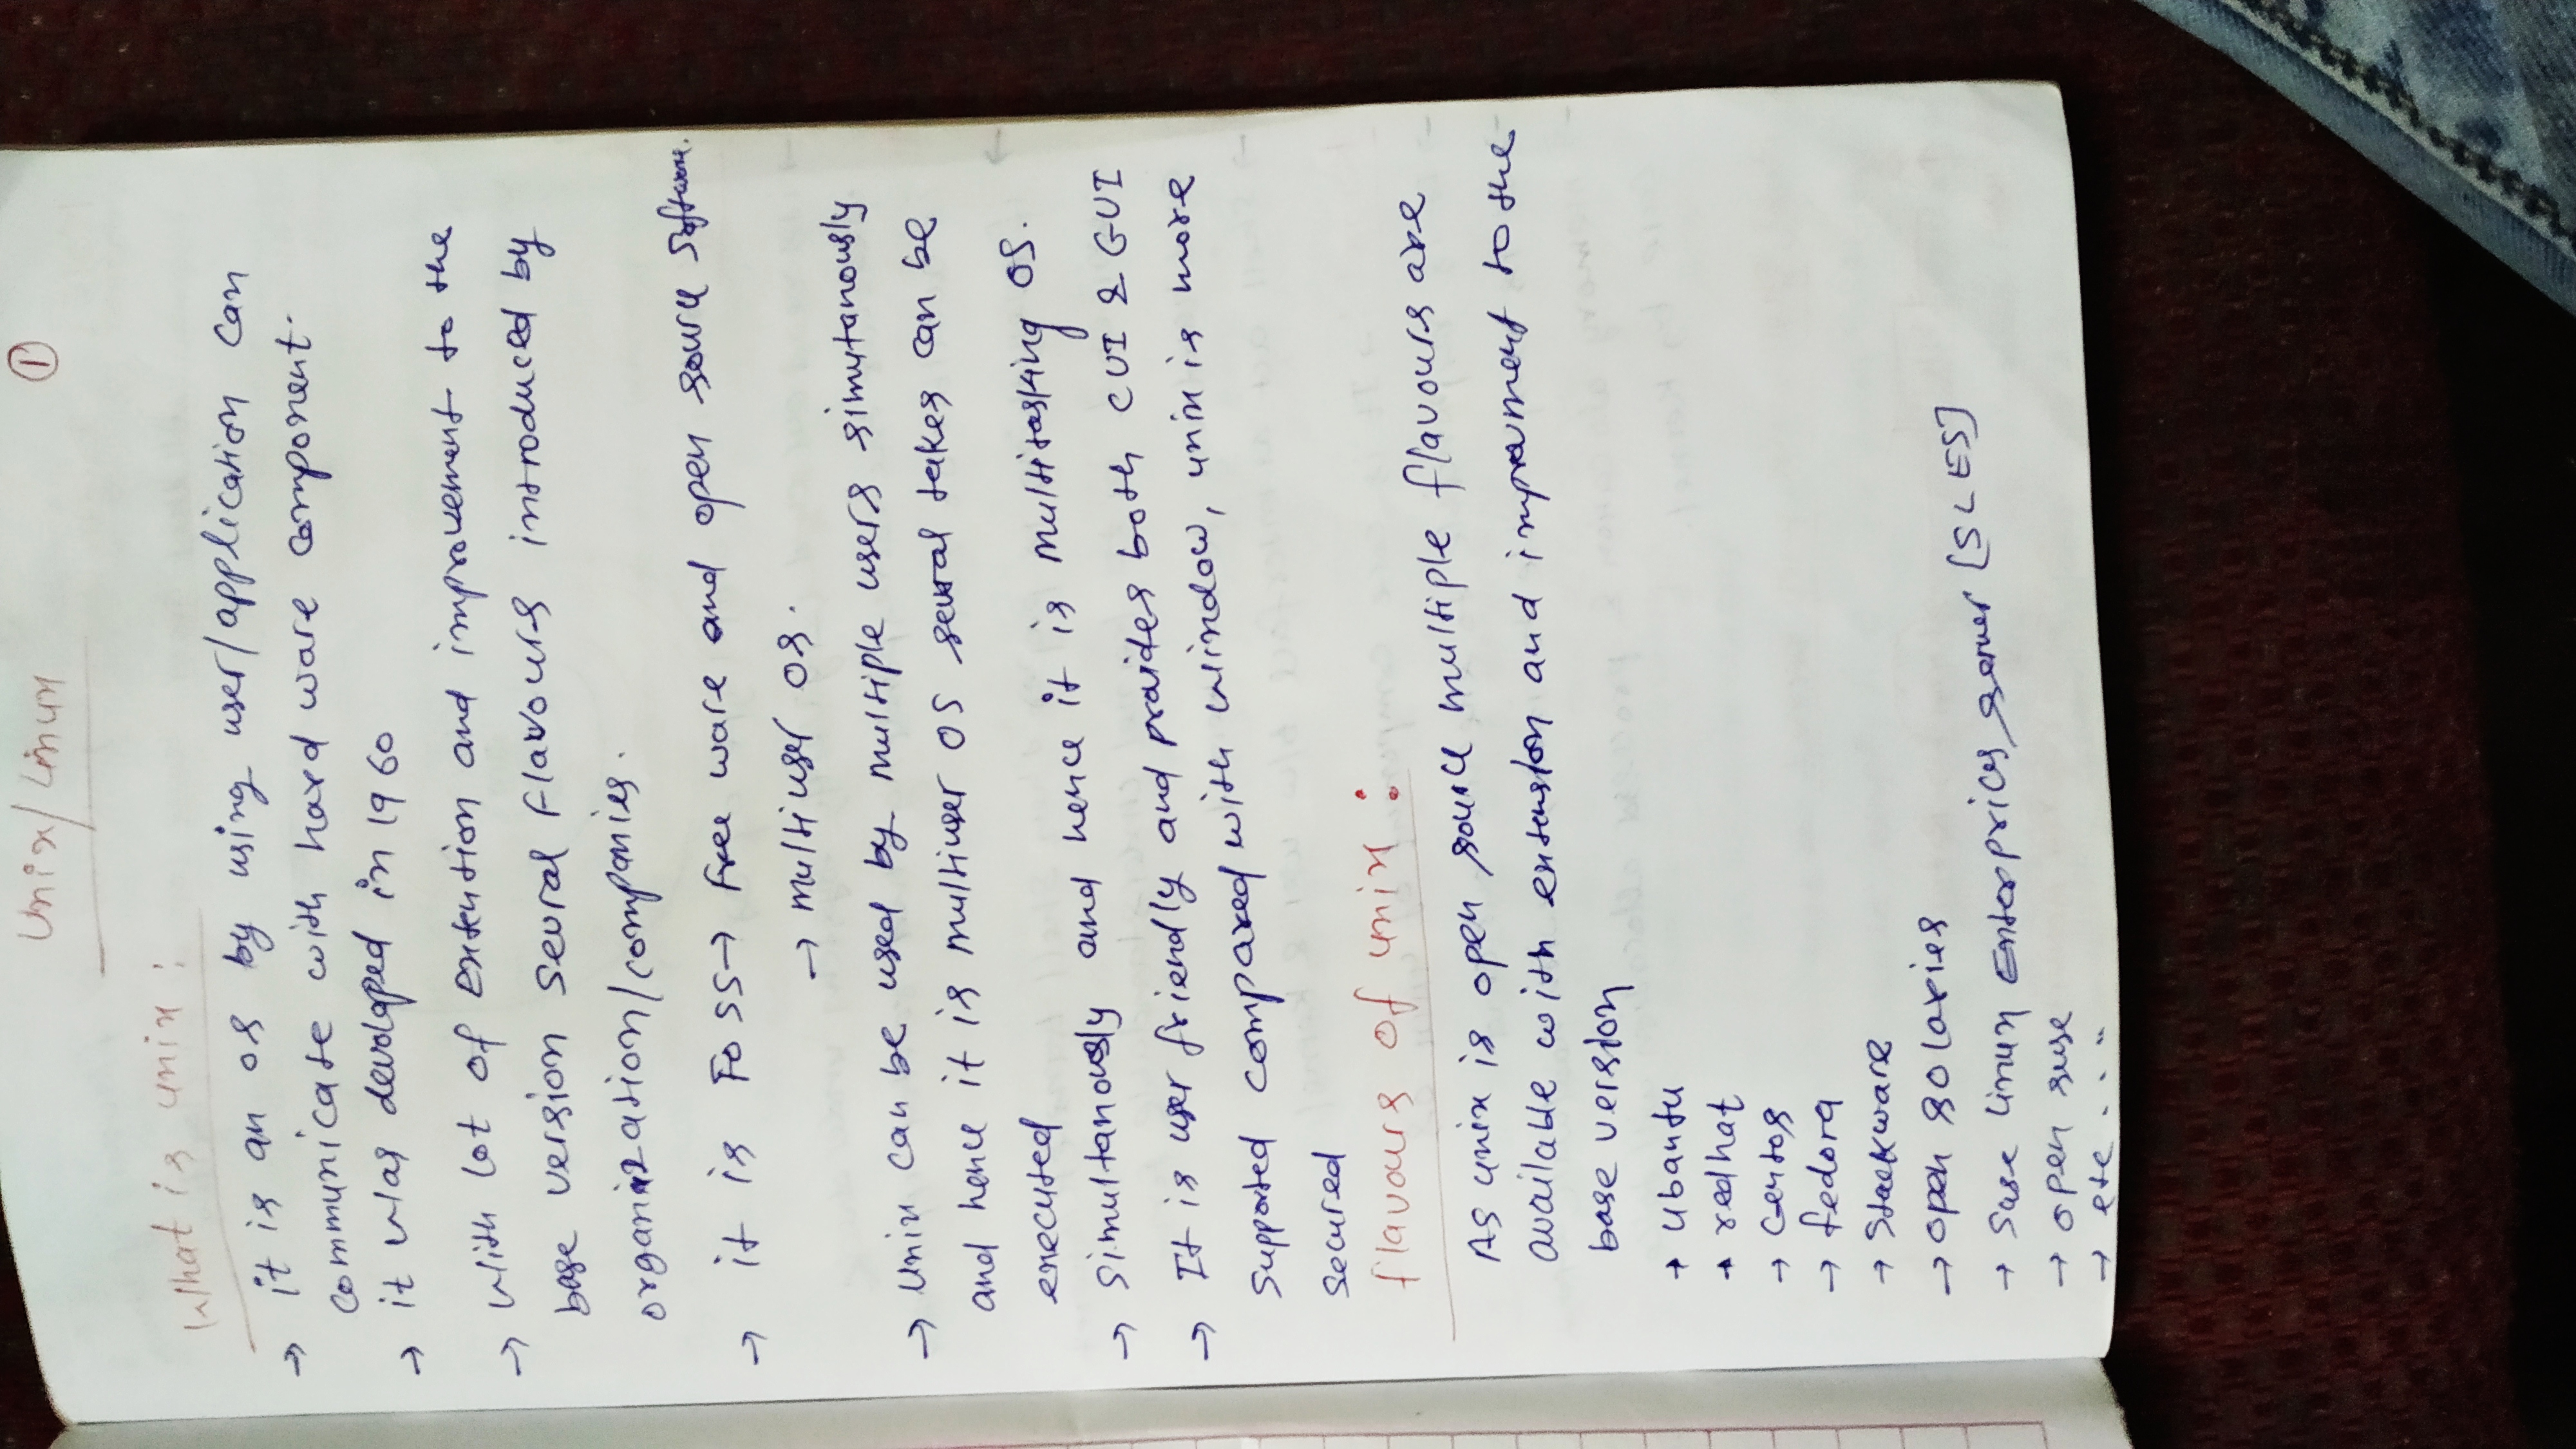 Unix/Linux ①
What is unix :
→ it is an os by using user/application can
communicate with hard ware component.
→ it was devoloped in 1960
→ With lot of Extention and improvement to the
base version Sevral Flavours introduced by
organization/companies.
→ it is FOSS→ Free ware and open source Software.
→ multiuser os.
→ Unix can be used by multiple users simutanously
and hence it is multiuser OS sevral takes can be
executed
→ Simultanously and hence it is multitasking OS.
→ It is user friendly and provides both CUI & GUI
Supported compared with Window, unix is more
secured
flavours of unix :
As unix is open source multiple flavours are
available with extension and improvment to the
base version
→ Ubantu
→ redhat
→ Centos
→ fedora
→ Stackware
→ open solaries
→ Suse linux Enterprices server [SLES]
→ open suse
→ etc ....